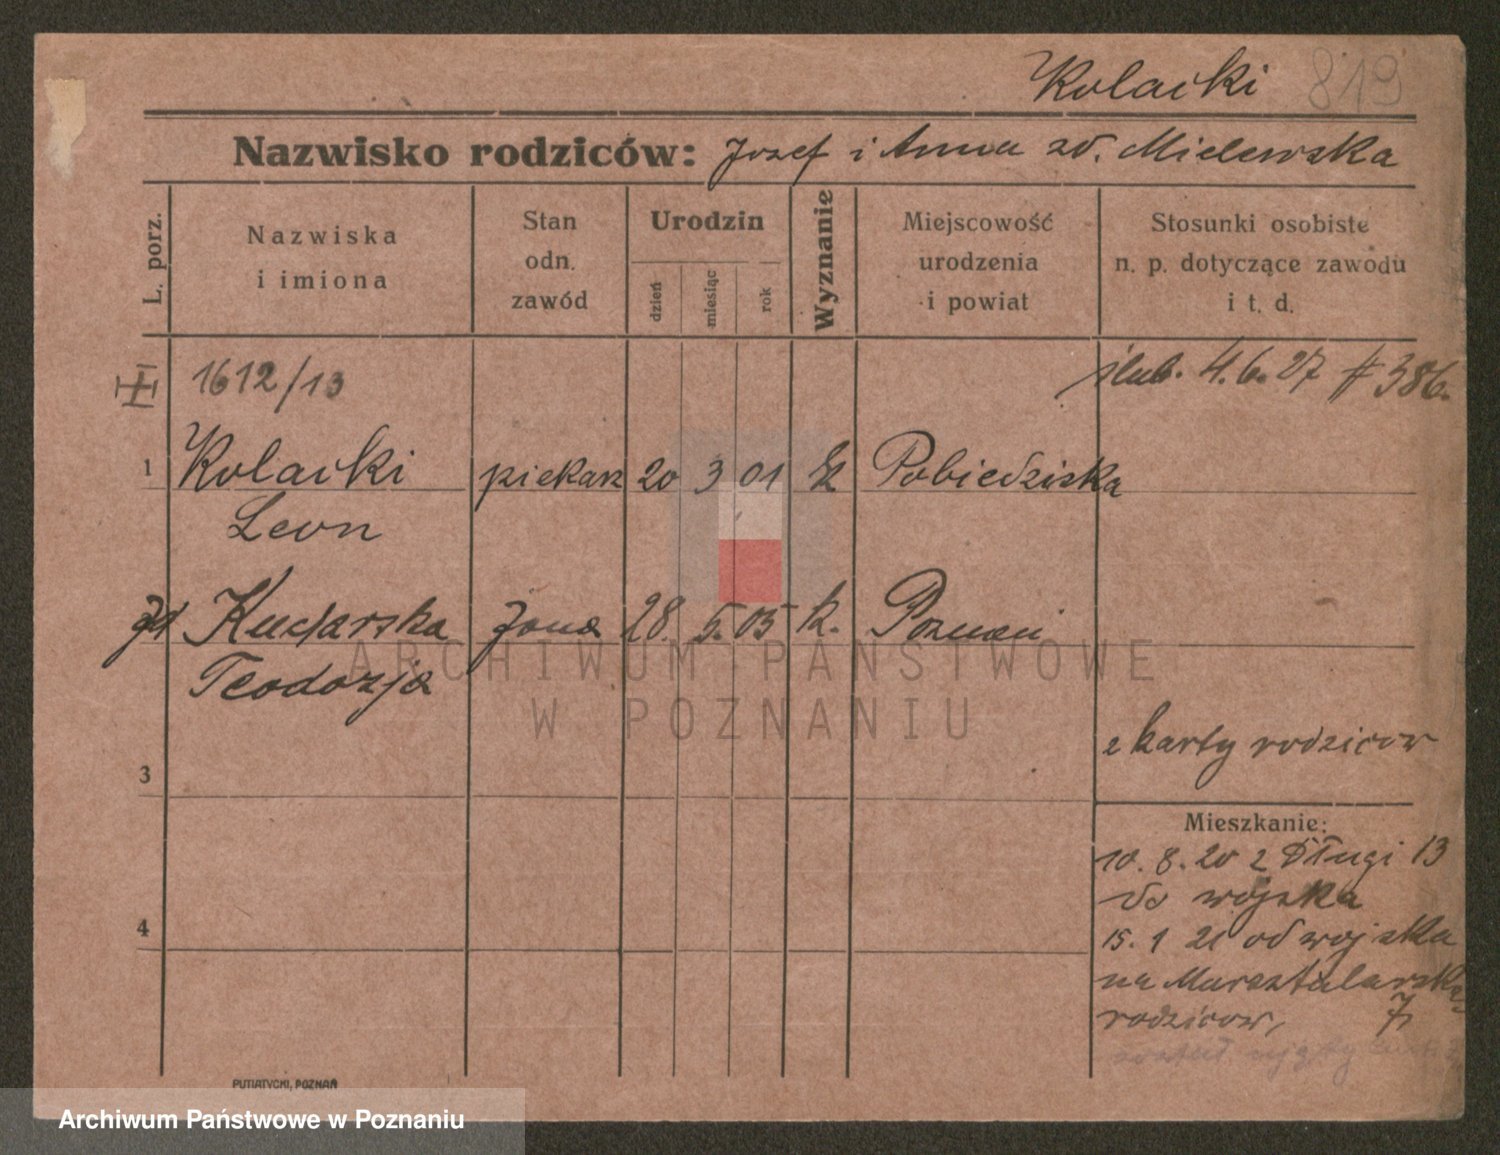 Kolacki 819
Nazwisko rodziców: Józef i Anna zd. Mielewska
L. porz.
Nazwiska
i imiona
Stan
odn.
zawód
Urodzin
dzień
miesiąc
rok
Wyznanie
Miejscowość
urodzenia
i powiat
Stosunki osobiste
n. p. dotyczące zawodu
i t. d.
1612/13
ślub. 4.6.27 # 386.
1 Kolacki piekarz 20 3 01 Pobiedziska
Leon
żona 28. 5. 05 k. Poznań
Teodozja
z karty rodziców
3
Mieszkanie:
10. 8. 20 z Długi 13
do wojska
4
15. 1 21 od wojska
na Masztalarską
rodziców, 7
PUTIATYCKI, POZNAŃ
ARCHIWUM PAŃSTWOWE
W POZNANIU
Archiwum Państwowe w Poznaniu